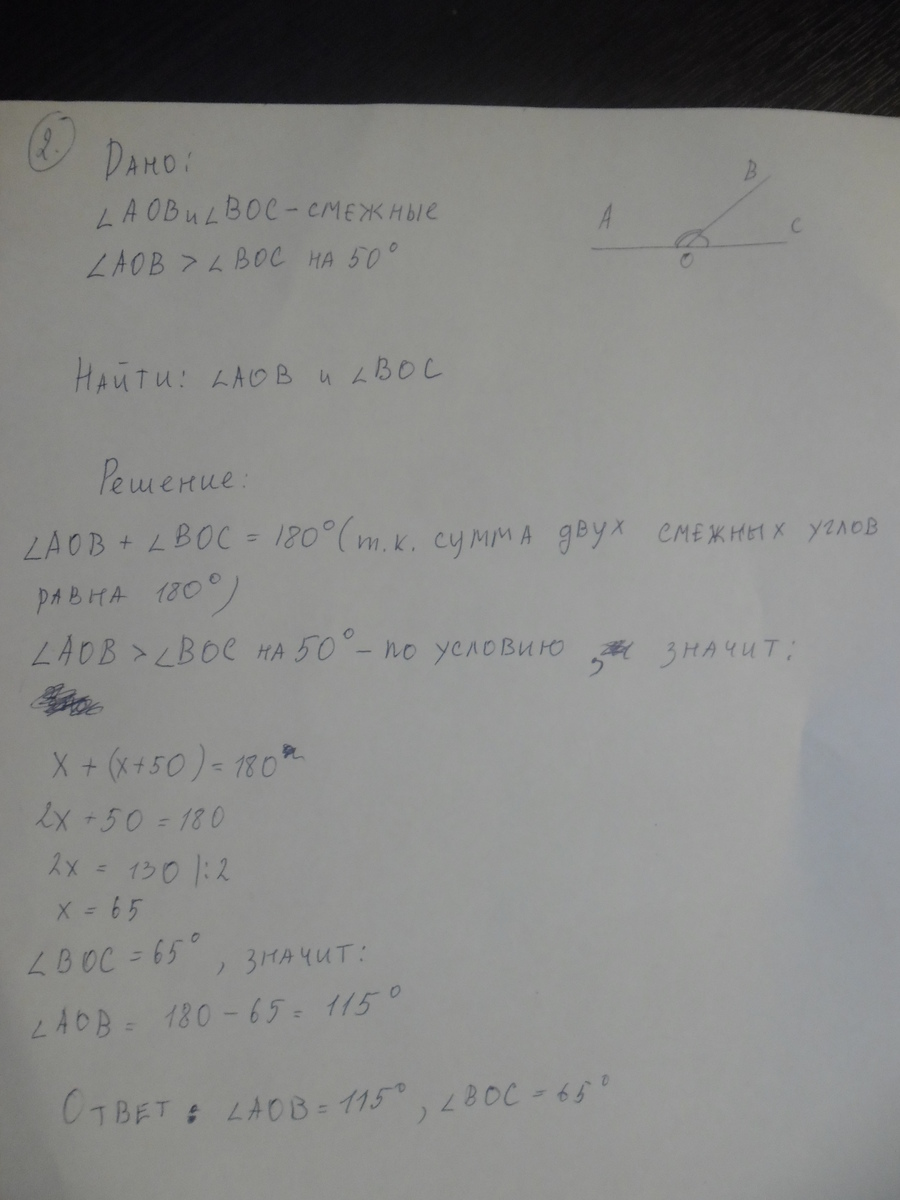 2.
Дано:
∠AOB и ∠BOC - смежные
∠AOB > ∠BOC на 50°
A
B
C
O
Найти: ∠AOB и ∠BOC
Решение:
∠AOB + ∠BOC = 180° (т.к. сумма двух смежных углов
равна 180°)
∠AOB > ∠BOC на 50° - по условию, значит:
x + (x+50) = 180
2x + 50 = 180
2x = 130 |:2
x = 65
∠BOC = 65°, значит:
∠AOB = 180 - 65 = 115°
Ответ: ∠AOB = 115°, ∠BOC = 65°